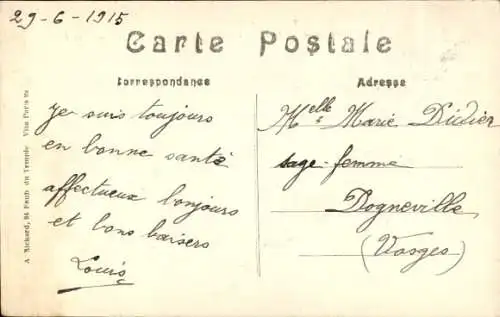 29-6-1915
Carte Postale
Correspondance
Adresse
Je suis toujours
en bonne santé
affectueux bonjours
et bons baisers
Louis
Melle Marie Didier
sage-femme
Dogneville
(Vosges)
A. Richard, 84 Faub. du Temple